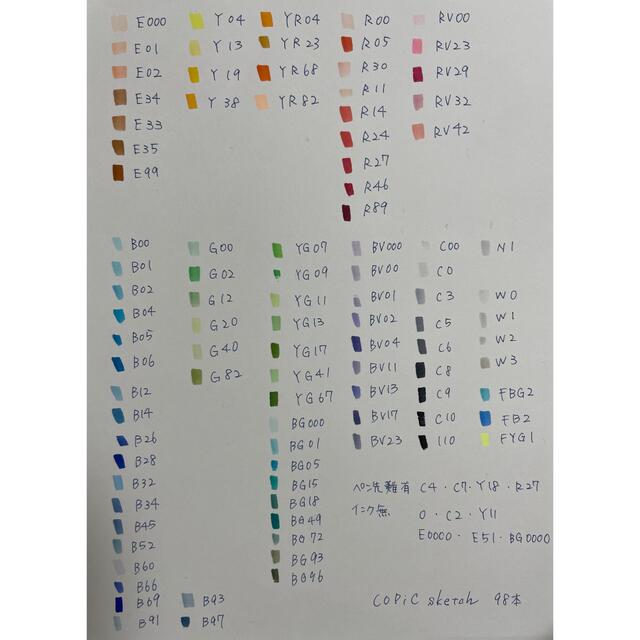 E000
E01
E02
E34
E33
E35
E99
Y04
Y13
Y19
Y38
YR04
YR23
YR68
YR82
R00
R05
R30
R11
R14
R24
R27
R46
R89
RV00
RV23
RV29
RV32
RV42
B00
B01
B02
B04
B05
B06
B12
B14
B26
B28
B32
B34
B45
B52
B60
B66
B69
B91
B93
B97
G00
G02
G12
G20
G40
G82
YG07
YG09
YG11
YG13
YG17
YG41
YG67
BG000
BG01
BG05
BG15
BG18
BG49
BG72
BG93
BG96
BV000
BV00
BV01
BV02
BV04
BV11
BV13
BV17
BV23
C00
C0
C3
C5
C6
C8
C9
C10
110
N1
W0
W1
W2
W3
FBG2
FB2
FYG1
ペン先難有 C4・C7・Y18・R27
インク無 0・C2・Y11
E0000・E51・BG0000
COPiC sketch 98本